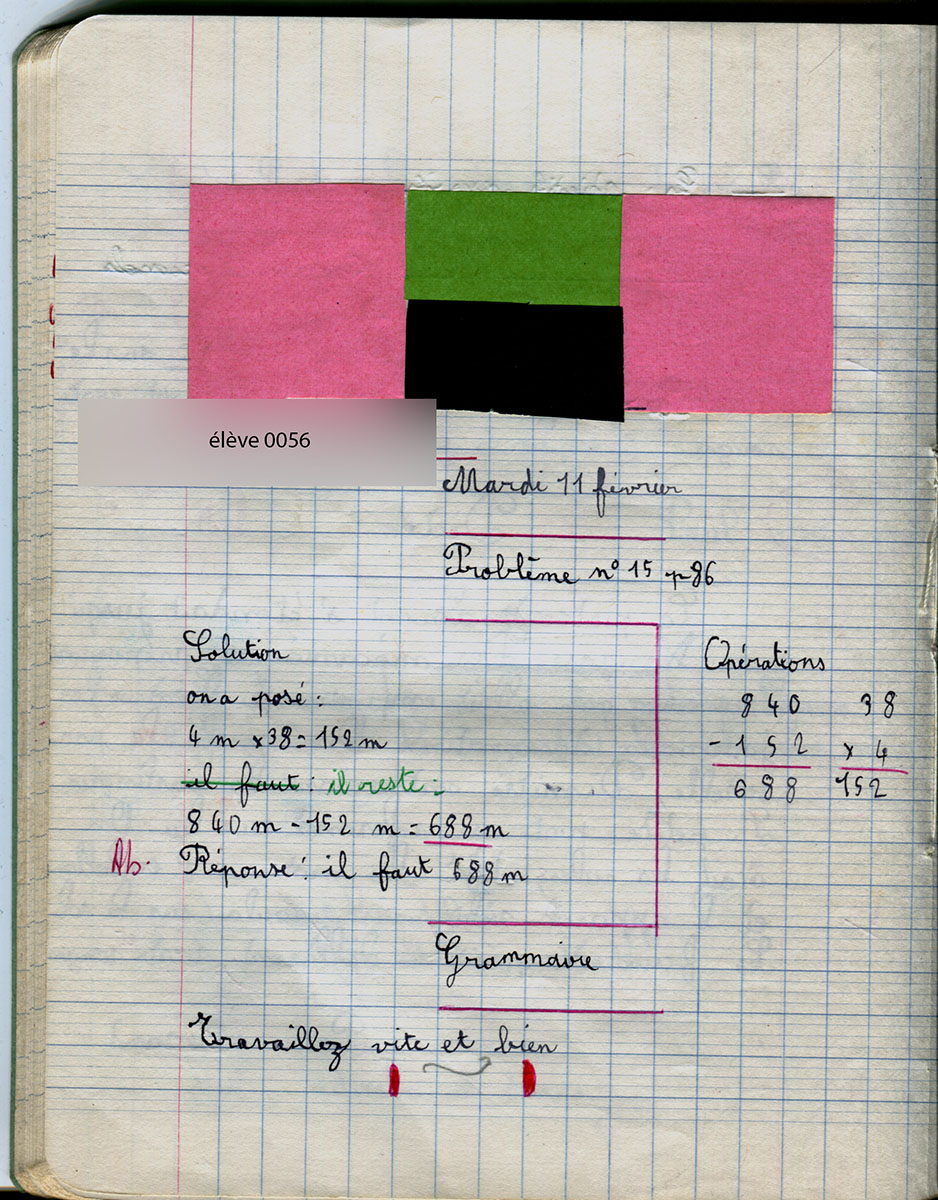 élève 0056
Mardi 11 février
Problème n° 15 p 86
Solution
on a posé :
4 m x 38 = 152 m
il faut : il reste :
840 m - 152 m = 688 m
Ab. Réponse : il faut 688 m
Opérations
840 38
- 152 x 4
688 152
Grammaire
Travaillez vite et bien